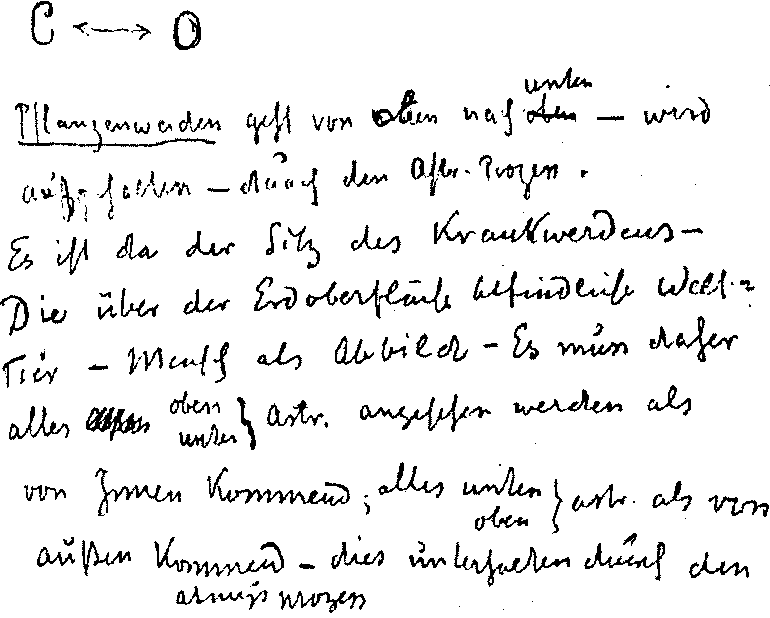 C ⟷ O
Pflanzenwerden geht von oben nach unten oben — wird
aufgehalten — durch den Astr. Prozess.
Es ist da der Sitz des Krankwerdens —
Die über der Erdoberfläche befindliche Welt:
Tier — Mensch als Abbild — Es muss daher
alles oben unten } Astr. angesehen werden als
von Innen kommend; alles unten oben } astr. als von
außen kommend — dies unterhalten durch den
atmungsprozess